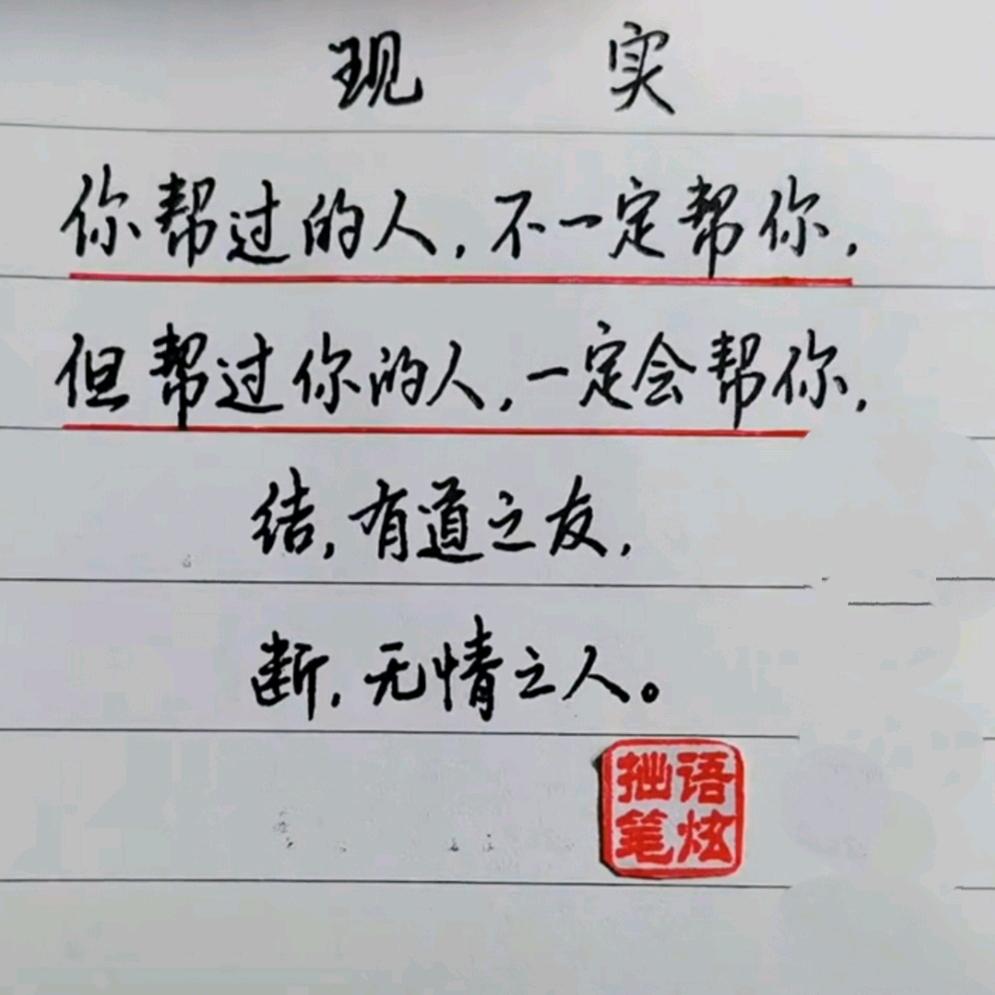 现 实
你帮过的人,不一定帮你,
但帮过你的人,一定会帮你,
结,有道之友,
断,无情之人。
语炫
拙笔